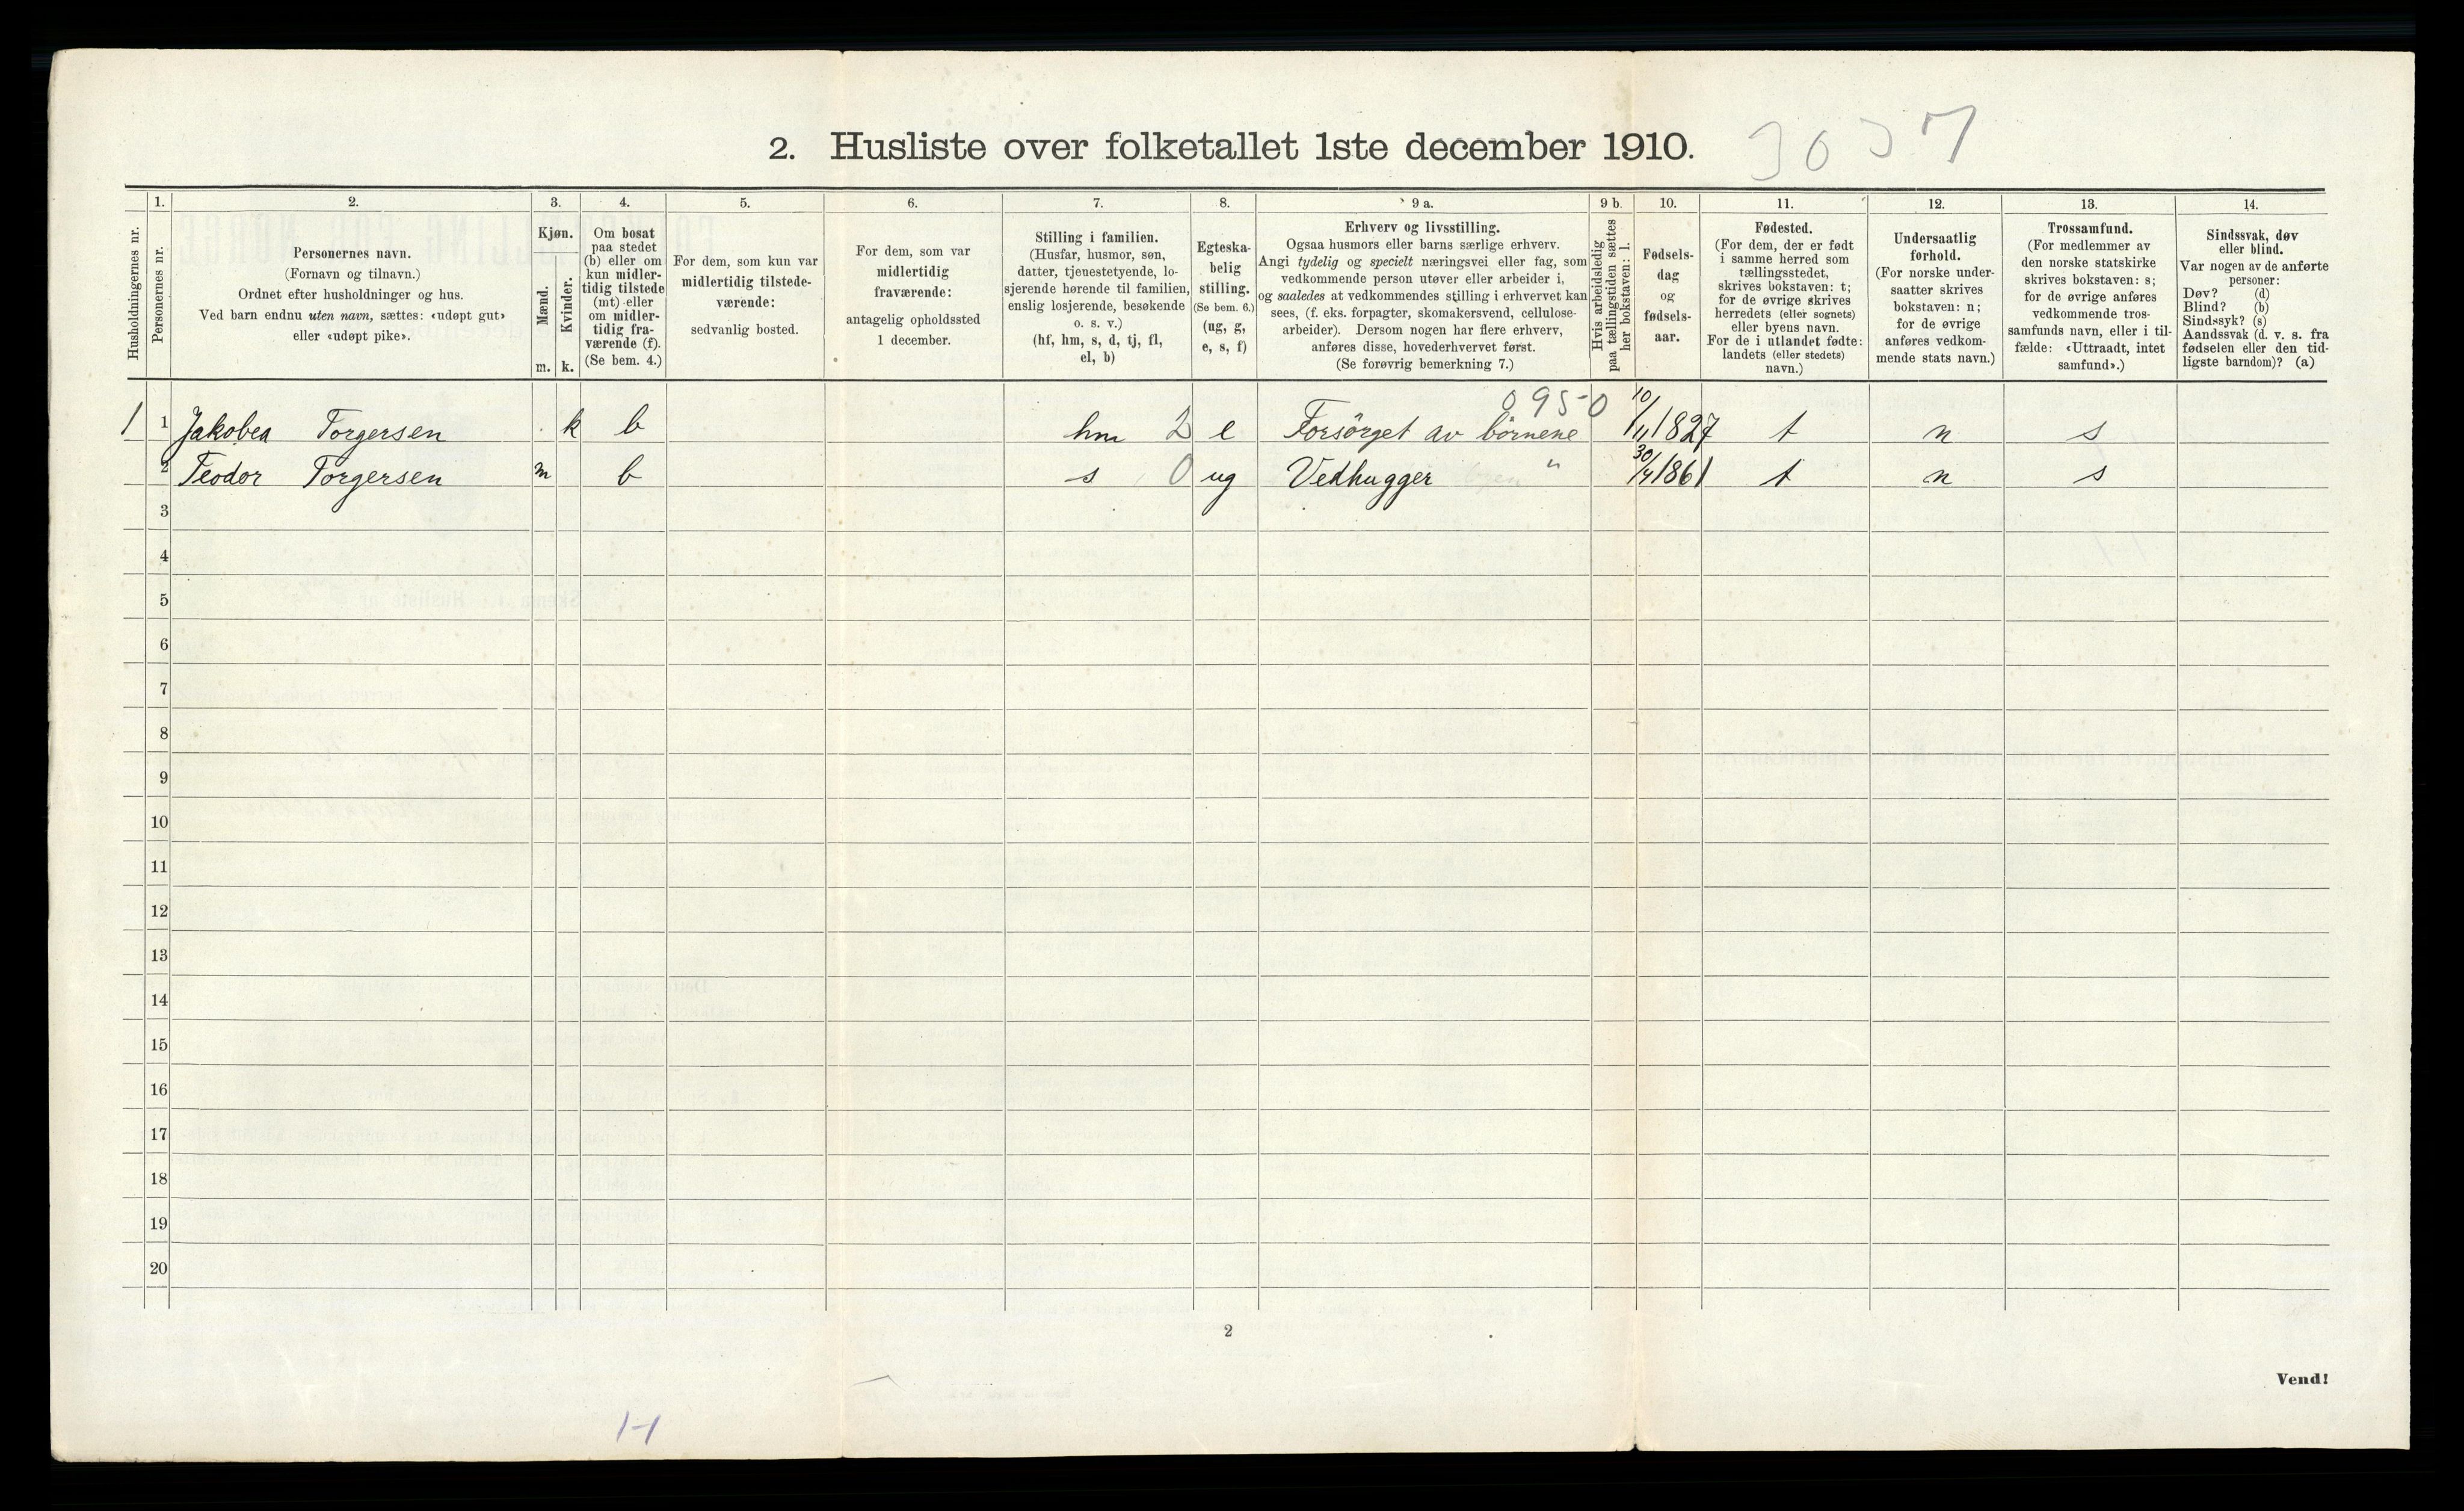 2. Husliste over folketallet 1ste december 1910.
3037
Husholdningernes nr.
1.
Personernes nr.
2.
Personernes navn.
(Fornavn og tilnavn.)
Ordnet efter husholdninger og hus.
Ved barn endnu uten navn, sættes: «udøpt gut»
eller «udøpt pike».
3.
Kjøn.
Mænd.
Kvinder.
m. k.
4.
Om bosat
paa stedet
(b) eller om
kun midler-
tidig tilstede
(mt) eller
om midler-
tidig fra-
værende (f).
(Se bem. 4.)
5.
For dem, som kun var
midlertidig tilstede-
værende:
sedvanlig bosted.
6.
For dem, som var
midlertidig
fraværende:
antagelig opholdssted
1 december.
7.
Stilling i familien.
(Husfar, husmor, søn,
datter, tjenestetyende, lo-
sjerende hørende til familien,
enslig losjerende, besøkende
o. s. v.)
(hf, hm, s, d, tj, fl,
el, b)
8.
Egteska-
belig
stilling.
(Se bem. 6.)
(ug, g,
e, s, f)
9 a.
Erhverv og livsstilling.
Ogsaa husmors eller barns særlige erhverv.
Angi tydelig og specielt næringsvei eller fag, som
vedkommende person utøver eller arbeider i,
og saaledes at vedkommendes stilling i erhvervet kan
sees, (f. eks. forpagter, skomakersvend, cellulose-
arbeider). Dersom nogen har flere erhverv,
anføres disse, hovederhvervet først.
(Se forøvrig bemerkning 7.)
9 b.
Hvis arbeidsledig
paa tællingstiden sættes
her bokstaven: l.
10.
Fødsels-
dag
og
fødsels-
aar.
11.
Fødested.
(For dem, der er født
i samme herred som
tællingsstedet,
skrives bokstaven: t;
for de øvrige skrives
herredets (eller sognets)
eller byens navn.
For de i utlandet fødte:
landets (eller stedets)
navn.)
12.
Undersaatlig
forhold.
(For norske under-
saatter skrives
bokstaven: n;
for de øvrige
anføres vedkom-
mende stats navn.)
13.
Trossamfund.
(For medlemmer av
den norske statskirke
skrives bokstaven: s;
for de øvrige anføres
vedkommende tros-
samfunds navn, eller i til-
fælde: «Uttraadt, intet
samfund».)
14.
Sindssvak, døv
eller blind.
Var nogen av de anførte
personer:
Døv? (d)
Blind? (b)
Sindssyk? (s)
Aandssvak (d. v. s. fra
fødselen eller den tid-
ligste barndom)? (a)
0950
1 1 Jakobea Torgersen k b hm 2 e Forsörget av börnene 10/11 1827 t n s
2 Teodor Torgersen m b s 0 ug Vedhugger " 30/4 1861 t n s
3
4
5
6
7
8
9
10
11
12
13
14
15
16
17
18
19
20
2
Vend!